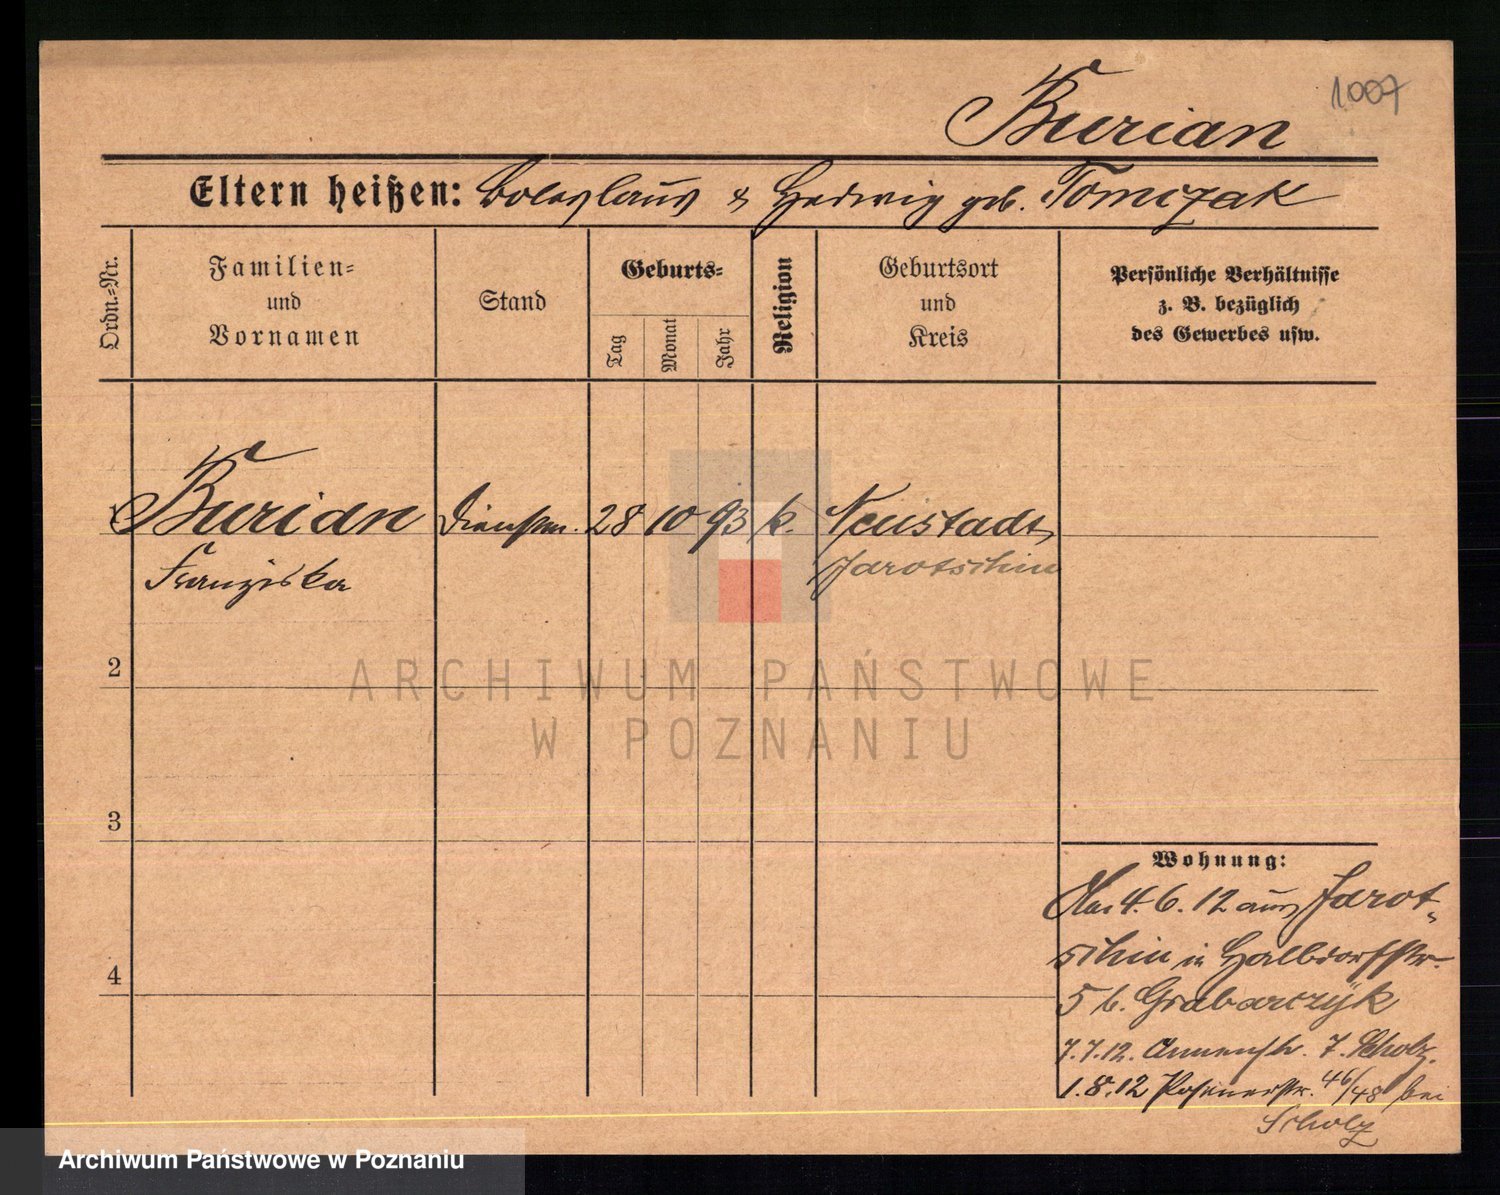 1007
Burian
Eltern heißen: Boleslaus & Hedwig geb. Tomczak
Ordn.-Nr.
Familien-
und
Vornamen
Stand
Geburts-
Tag
Monat
Jahr
Religion
Geburtsort
und
Kreis
Persönliche Verhältnisse
z. B. bezüglich
des Gewerbes usw.
Burian Dienstm. 28 10 93 k. Neustadt
Franziska Jarotschin
2
3
4
Wohnung:
4. 6. 12 aus Jarot-
schin in Halbdorfstr.
5 b. Grabarczyk
7.7.12. Annenstr. 7. Scholz.
1.8.12 Posenerstr. 46/48 bei
Scholz
ARCHIWUM PAŃSTWOWE
W POZNANIU
Archiwum Państwowe w Poznaniu